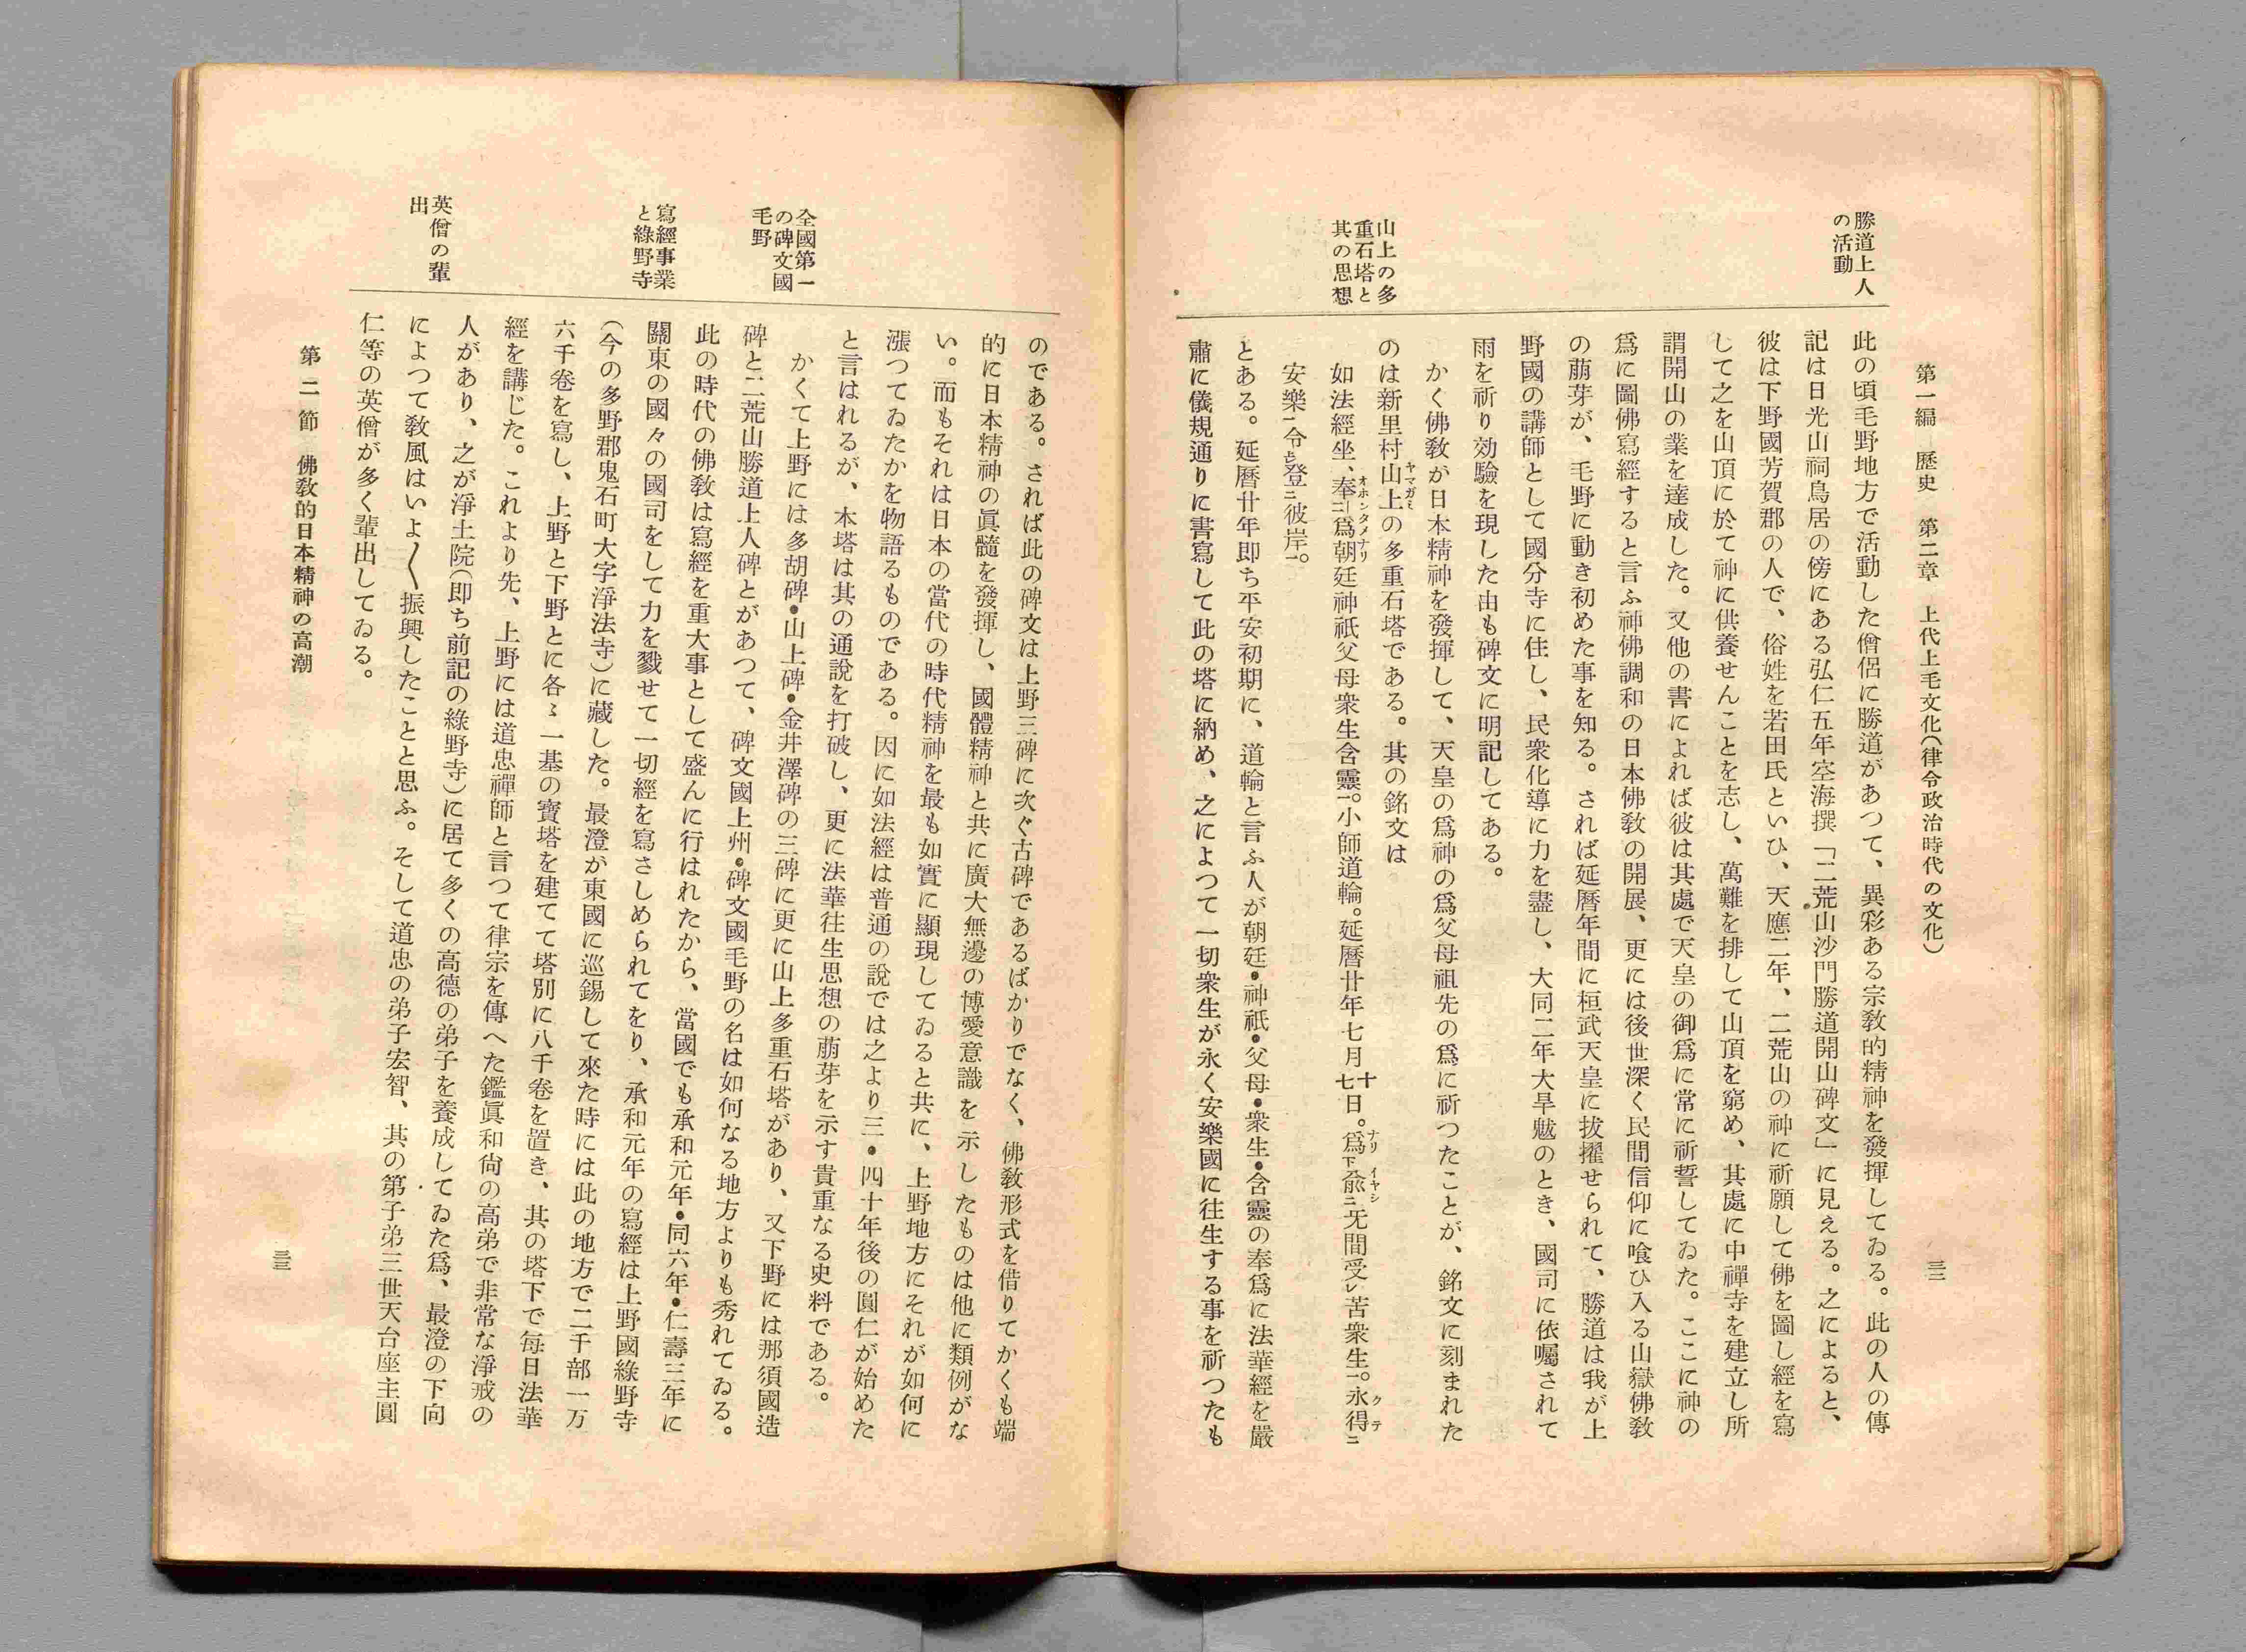 第一編　歷史　第二章　上代上毛文化(律令政治時代の文化)
三二
勝道上人
の活動
此の頃毛野地方で活動した僧侶に勝道があつて、異彩ある宗敎的精神を發揮してゐる。此の人の傳
記は日光山祠鳥居の傍にある弘仁五年空海撰「二荒山沙門勝道開山碑文」に見える。之によると、
彼は下野國芳賀郡の人で、俗姓を若田氏といひ、天應二年、二荒山の神に祈願して佛を圖し經を寫
して之を山頂に於て神に供養せんことを志し、萬難を排して山頂を窮め、其處に中禪寺を建立し所
謂開山の業を達成した。又他の書によれば彼は其處で天皇の御爲に常に祈誓してゐた。ここに神の
爲に圖佛寫經すると言ふ神佛調和の日本佛敎の開展、更には後世深く民間信仰に喰ひ入る山嶽佛敎
の萠芽が、毛野に動き初めた事を知る。されば延曆年間に桓武天皇に拔擢せられて、勝道は我が上
野國の講師として國分寺に住し、民衆化導に力を盡し、大同二年大旱魃のとき、國司に依囑されて
雨を祈り効驗を現した由も碑文に明記してある。
山上の多
重石塔と
其の思想
かく佛敎が日本精神を發揮して、天皇の爲神の爲父母祖先の爲に祈つたことが、銘文に刻まれた
のは新里村山上ヤマガミの多重石塔である。其の銘文は
如法經坐、奉二‐爲オホンタメナリ朝廷神祇父母衆生含靈一。小師道輪。延曆廿年七月十七日。爲ナリ下兪イヤシ二无間受レ苦衆生一。永得クテ二
安樂一令と登二彼岸一。
とある。延曆廿年即ち平安初期に、道輪と言ふ人が朝廷・神祇・父母・衆生・含靈の奉爲に法華經を嚴
肅に儀規通りに書寫して此の塔に納め、之によつて一切衆生が永く安樂國に往生する事を祈つたも
のである。されば此の碑文は上野三碑に次ぐ古碑であるばかりでなく、佛敎形式を借りてかくも端
的に日本精神の眞髓を發揮し、國體精神と共に廣大無邊の博愛意識を示したものは他に類例がな
い。而もそれは日本の當代の時代精神を最も如實に顯現してゐると共に、上野地方にそれが如何に
漲つてゐたかを物語るものである。因に如法經は普通の說では之より三・四十年後の圓仁が始めた
と言はれるが、本塔は其の通說を打破し、更に法華往生思想の萠芽を示す貴重なる史料である。
全國第一
の碑文國
毛野
かくて上野には多胡碑・山上碑・金井澤碑の三碑に更に山上多重石塔があり、又下野には那須國造
碑と二荒山勝道上人碑とがあつて、碑文國上州・碑文國毛野の名は如何なる地方よりも秀れてゐる。
寫經事業
と綠野寺
此の時代の佛敎は寫經を重大事として盛んに行はれたから、當國でも承和元年・同六年・仁壽三年に
關東の國々の國司をして力を戮せて一切經を寫さしめられてをり、承和元年の寫經は上野國綠野寺
(今の多野郡鬼石町大字淨法寺)に藏した。最澄が東國に巡錫して來た時には此の地方で二千部一万
六千卷を寫し、上野と下野とに各〻一基の寶塔を建てて塔別に八千卷を置き、其の塔下で每日法華
經を講じた。これより先、上野には道忠禪師と言つて律宗を傳へた鑑眞和尙の高弟で非常な淨戒の
英僧の輩
出
人があり、之が淨土院(即ち前記の綠野寺)に居て多くの高德の弟子を養成してゐた爲、最澄の下向
によつて敎風はいよ〱振興したことと思ふ。そして道忠の弟子宏智、其の第子弟三世天台座主圓
仁等の英僧が多く輩出してゐる。
第二節　佛敎的日本精神の高潮
三三